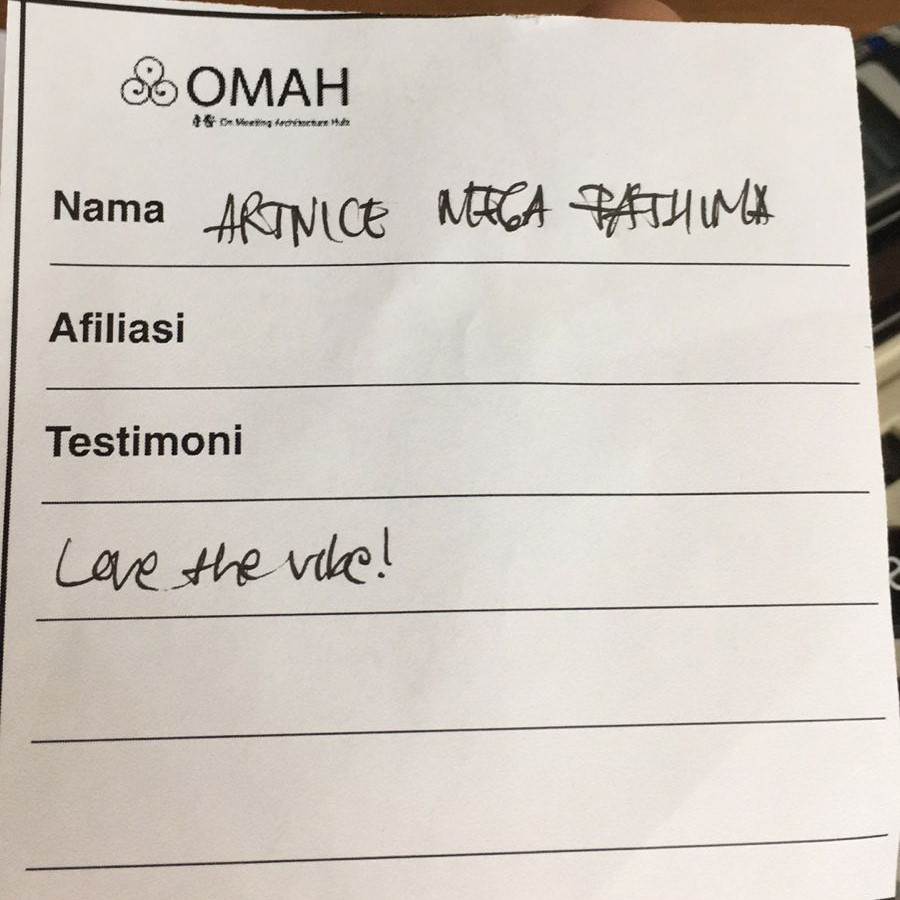 OMAH
On Meeting Architecture Hub
Nama ARTNICE MEGA FATHIMA
Afiliasi
Testimoni
Love the vibe!